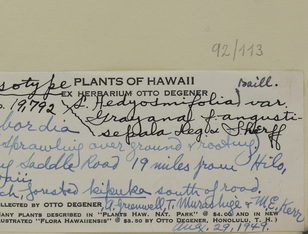 92/113
sotype PLANTS OF HAWAII
EX HERBARIUM OTTO DEGENER Gaill.
o. 19,792 S. Hedyosmifolia var.
Grayana f. angusti-
sepala Deg & Sherff
bordia
Sprawling over ground & rooting,
Saddle Road 19 miles from Hilo,
waii
forested kipuka south of road.
LLECTED BY OTTO DEGENER, A. Greenwell, T. Murashige & M. E. Kerr
ANY PLANTS DESCRIBED IN "PLANTS HAW. NAT. PARK" @ $4.00 AND IN NEW
USTRATED "FLORA HAWAIIENSIS" @ $3.50 BY OTTO DEGENER, HONOLULU, T. H.)
Aug. 29, 1949